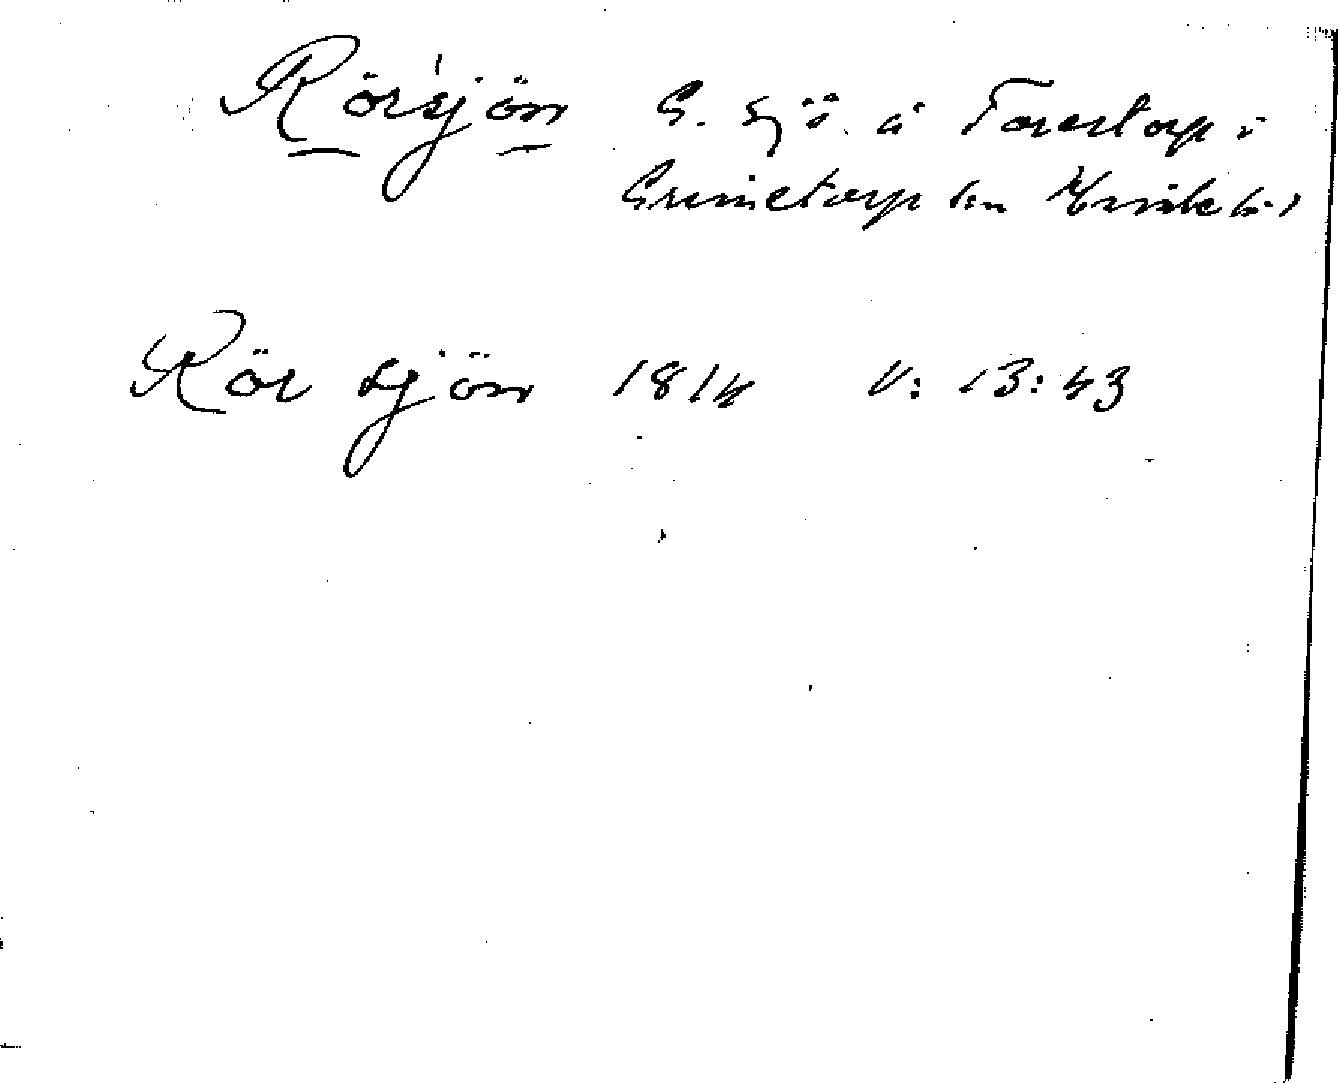 Rörsjön G. sjö. å Torestorp i
Grimetorp
Rör sjön 1814 V: 13:43